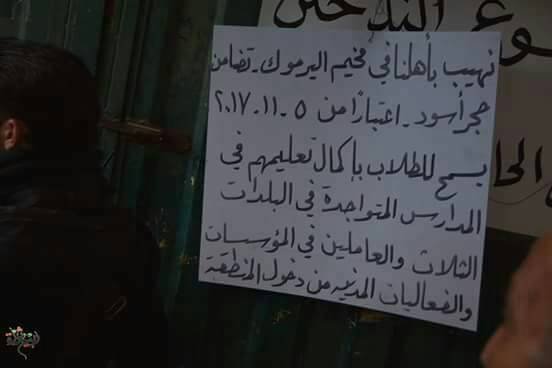 ممنوع التدخين
نهيب بأهلنا في مخيم اليرموك - تضامن
حجر أسود - اعتبارًا من ٥ - ١١ - ٢٠١٧
يسمح للطلاب بإكمال تعليمهم في
المدارس المتواجدة في البلدات
الثلاث والعاملين في المؤسسات
والفعاليات المدنيه من دخول المنطقة